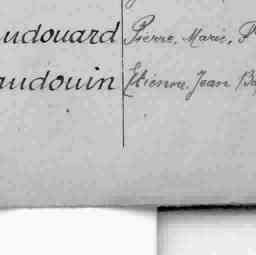 udouard Pierre, Marie, F
audouin Etienne, Jean Bap